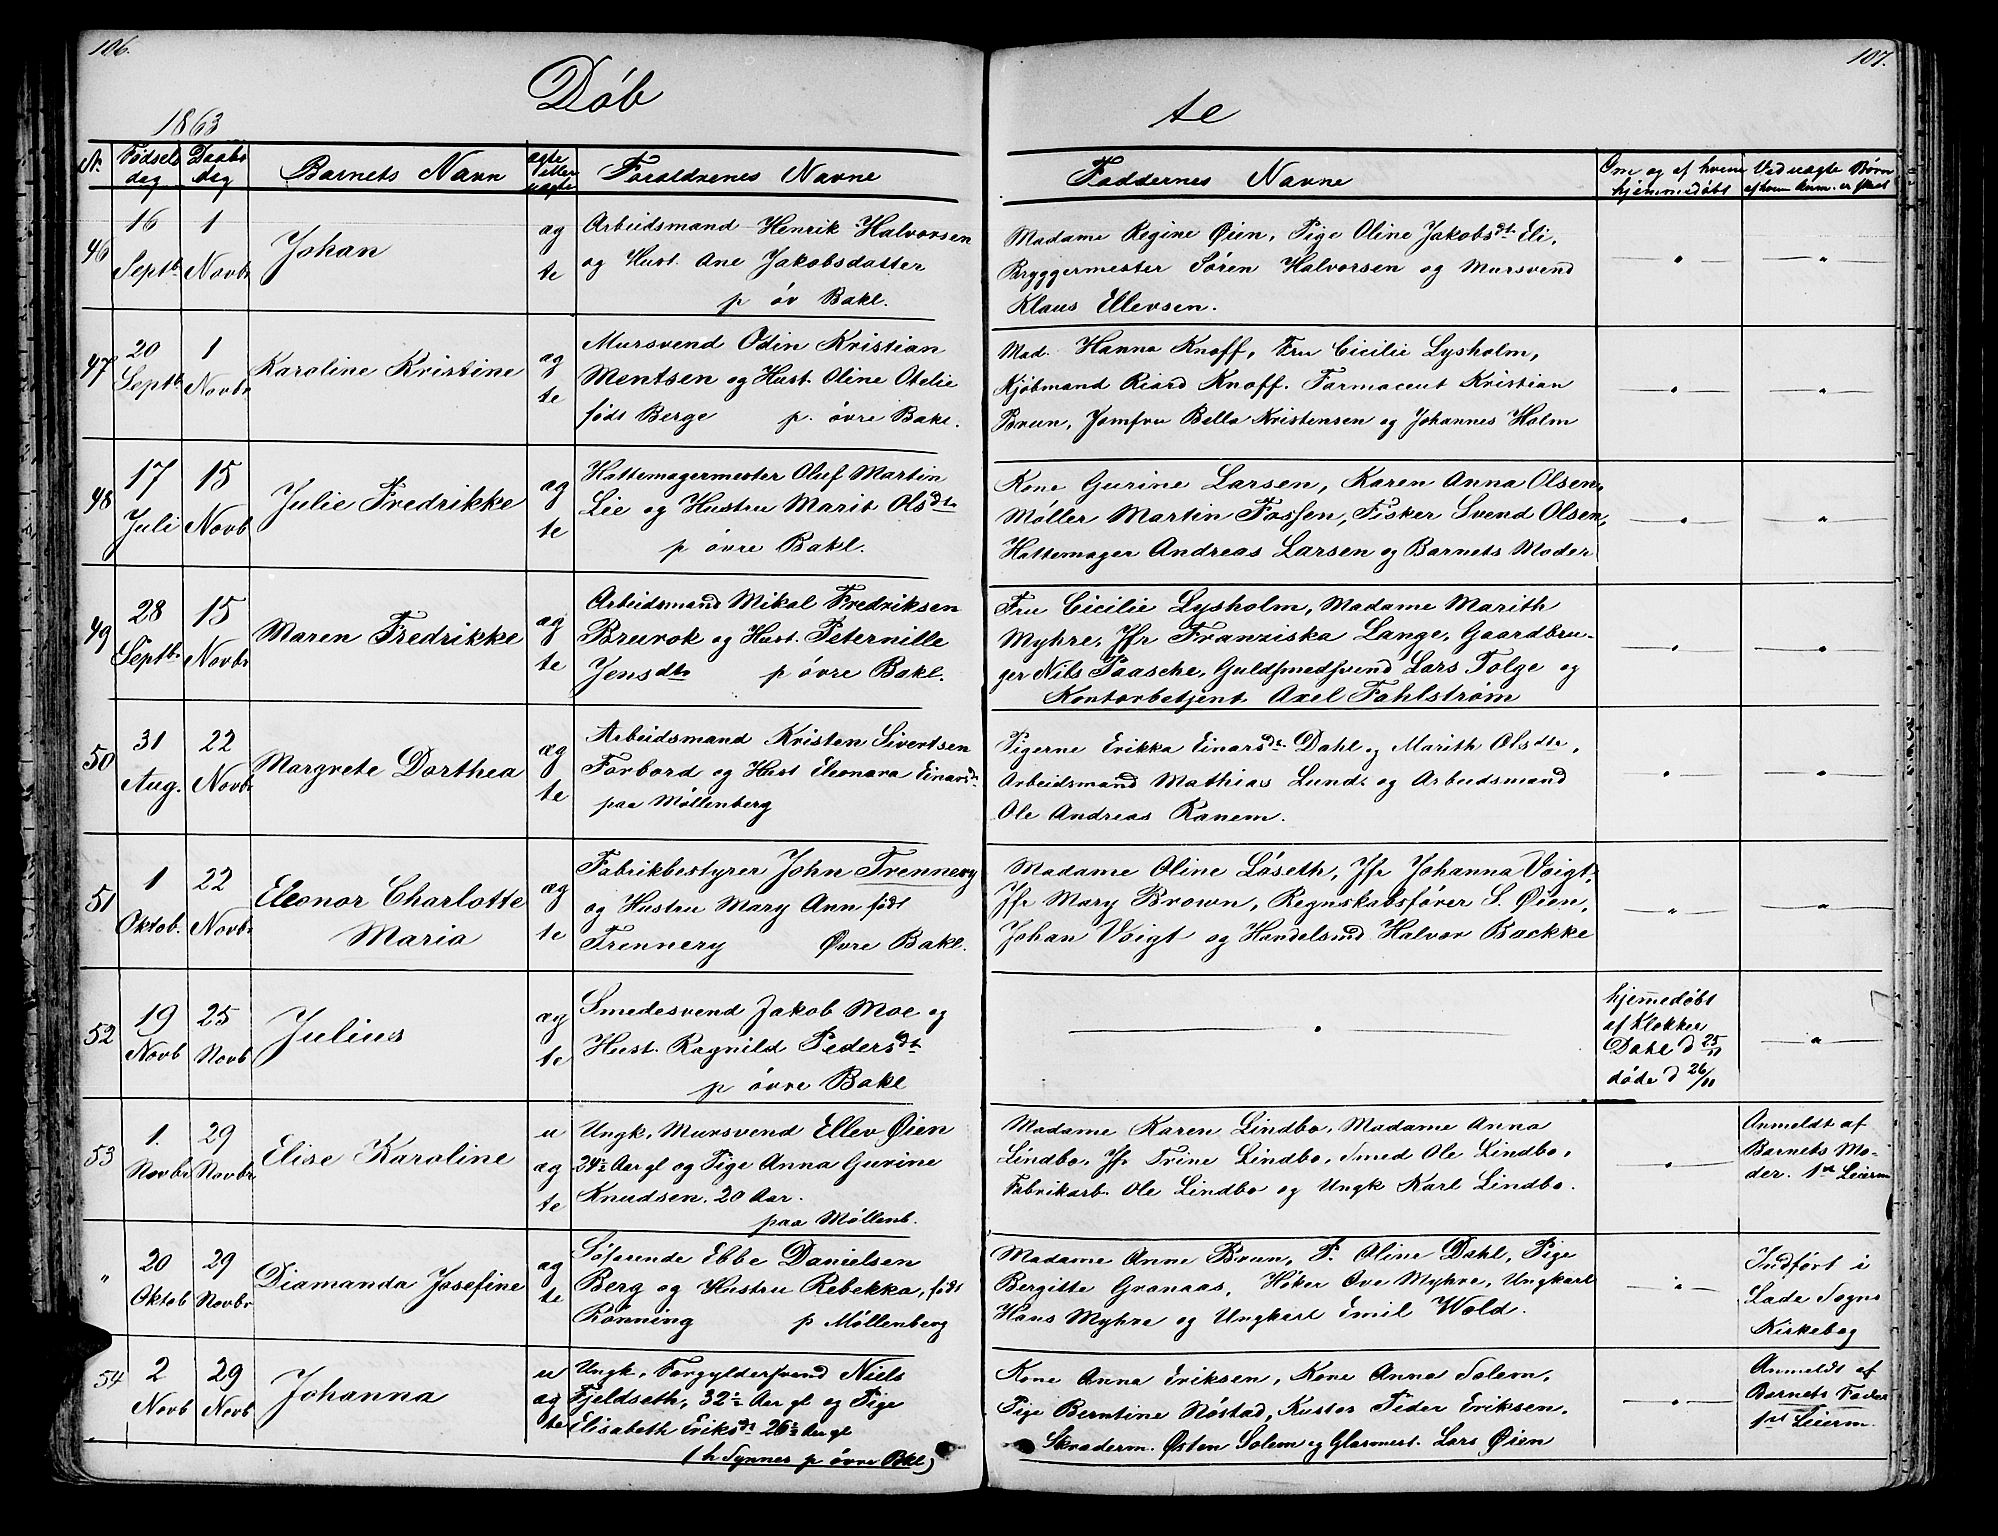 106.
Døb
1863
N. Fødsels dag Daabs dag Barnets Navn ægte eller uægte Forældrenes Navne
46 16 Septb. 1 Novbr Johan ægte
Arbeidsmand Henrik Halvorsen
og Hust. Ane Jakobsdatter
p øv Bakl.
47 20 Septb. 1 Novbr Karoline Kristine ægte
Mursvend Odin Kristian
Mentsen og Hust. Oline Otelie
født Berge p. øvre Bakl.
48 17 Juli 15 Novb Julie Fredrikke ægte
Hattemagermester Oluf Martin
Lie og Hustru Marit Olsdt.
p øvre Bakl.
49 28 Septb. 15 Novbr Maren Fredrikke ægte
Arbeidsmand Mikal Fredriksen
Bruvok og Hust. Peternille
Jensdtr p øvre Bakl.
50 31 Aug. 22 Novbr Margrete Dorthea ægte
Arbeidsmand Kristen Sivertsen
Forbord og Hust Eleonara Einarsdt.
paa Møllenberg
51 1 Oktob. 22 Novbr Eleonor Charlotte Maria ægte
Fabrikbestyrer John Trennery
og Hustru Mary Ann født
Trennery Øvre Bakl.
52 19 Novb 25 Novb Julius ægte
Smedesvend Jakob Moe og
Hust. Ragnild Pedersdt.
p øvre Bakl
53 1. Novbr 29 Novbr Elise Karoline uægte
Ungk. Mursvend Ellev Øien
24½ Aar gl og Pige Anna Gurine
Knudsen. 20 Aar.
paa Møllenb.
" 20 Oktob 29 Novbr Diamanda Josefine ægte
Søfarende Ebbe Danielsen
Berg og Hustru Rebekka, født
Rønning p Møllenberg
54 2 Novb 29 Novb Johanna uægte
Ungk. Forgyldersvend Niels
Fjeldseth, 32½ Aar gl og Pige
Elisabeth Eriksdt. 26½ Aar gl
(h Synnes p øvre Bkl)
107.
te
Faddernes Navne Om og af hvem hjemmedøbt Ved uægte Børn af hvem Anm. er skeet
Madame Regine Øien, Pige Oline Jakobsdt. Eli,
Bryggermester Søren Halvorsen og Mursvend
Klaus Ellevsen.
Mad. Hanna Knoff, Fru Cicilie Lysholm,
Kjøbmand Riard Knoff. Farmaceut Kristian
Brun, Jomfru Bella Kristensen og Johannes Holm
Kone Gurine Larsen, Karen Anna Olsen,
Møller Martin Fossen, Fisker Svend Olsen,
Hattemager Andreas Larsen og Barnets Moder
Fru Cicilie Lysholm, Madame Marith
Myhre, Jfr Franziska Lange, Gaardbru-
ger Nils Paasche, Guldsmedsvend Lars Tolge og
Kontorbetjent Axel Fahlstrøm
Pigerne Erikka Einarsdt. Dahl og Marith Olsdtr,
Arbeidsmand Mathias Lund og Arbeidsmand
Ole Andreas Ranem.
Madame Oline Løseth, Jfr Johanna Voigt,
Jfr Mary Brown, Regnskabsfører S. Øien,
Johan Voigt og Handelsmd Halvor Backke
hjemedøbt
af Klokker
Dahl d 25/11
døde d 26/11
Madame Karen Lindbo, Madame Anna
Lindbo, Jfr Trine Lindbo, Smed Ole Lindbo,
Fabrikarb. Ole Lindbo og Ungk Karl Lindbo.
Anmeldt af
Barnets Mo-
der. 1st Leierm
Madame Anne Brun, P. Oline Dahl, Pige
Bergitte Granaas, Høker Ove Myhre, Ungkarl
Hans Myhre og Ungkarl Emil Wold.
Indført i
Lade Sogns
Kirkebog
Kone Anna Eriksen, Kone Anna Solem,
Pige Berntine Nøstad, Kuster Peder Eriksen,
Skræderm. Østen Solem og Glasmest. Lars Øien
Anmeldt af
Barnets Fader
1st Leierm.